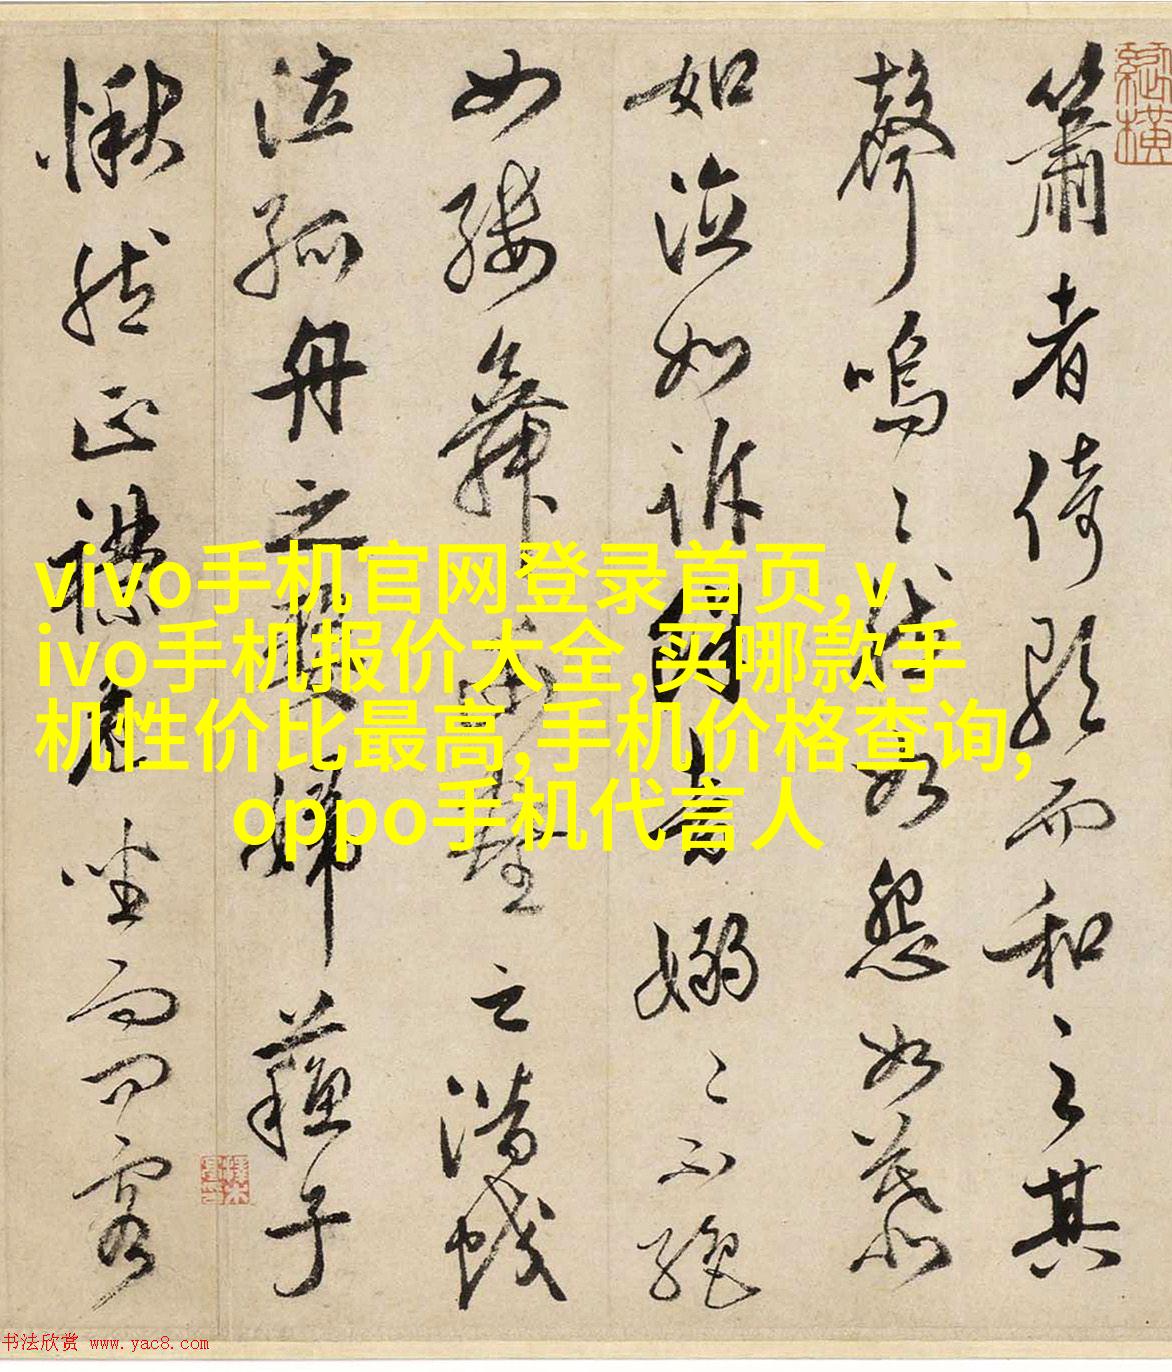 簫者倚歌而和之其
聲嗚〻然如怨如慕
如泣如訴餘音嫋〻不絕
如縷舞幽壑之潛蛟
泣孤舟之嫠婦蘇子
愀然正襟危坐而問客
vivo手机官网登录首页,v
ivo手机报价大全,买哪款手
机性价比最高,手机价格查询,
oppo手机代言人
书法欣赏 www.yac8.com